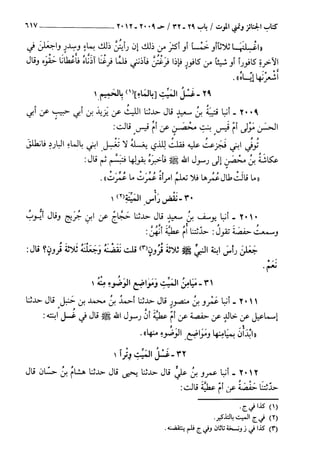 كتاب الجنائز وفي الموت / باب ٢٩ - ٣٢ / حـ ٢٠٠٩ - ٢٠١٢ ٦١٧
واغسلنها ثلاثاً أو خمساً أو أكثر من ذلك إن رأيتُنّ ذلك بماء وسِدر واجعلن في
الآخرة كافوراً أو شيئاً من كافور فإذا فرغتُنّ فآذِنَّني فلمّا فرغْنَا آذنّاه فأعطانا حَقْوَه وقال
أشعِرْنَها إيّاه».
٢٩ - غَسْلُ المَيِّت [بالماء](١) بالحَمِيم ١
٢٠٠٩ - أنبا قتيبةُ بنُ سعيدٍ قال حدثنا الليثُ عن يَزيدَ بنِ أبي حبيبٍ عن أبي
الحسن مَوْلَى أمّ قَيس بنتِ مِحْصَنٍ عن أمّ قيس قالت:
تُوفّي ابني فجَزِعتُ عليه فقلتُ لِلذي يَغسلُهُ لا تَغسِل ابني بالماءِ البارِدِ فانطلقَ
عكاشةُ بنُ مِحْصَنٍ إلى رسول الله ﷺ فأخبَرَهُ بِقولِها فتبسّم ثم قال:
«ما قالت طال عُمرُها فلا نعلمُ امرأةً عُمِّرَت ما عُمِّرَت».
٣٠ - نَقْضُ رَأسِ المَيِّتِ(٢) ١
٢٠١٠ - أنبا يوسف بنُ سعيدٍ قال حدثنا حَجّاجٌ عن ابنِ جُريجٍ وقال أيُّوبُ
وسمعتُ حفصةَ تقولُ: حدثتنا أُمُّ عطيّةَ أنّهُنّ:
جَعَلنَ رأسَ ابنة النبيّ ﷺ ثلاثةَ قُرونٍ(٣) قلت نَقَضْنَهُ وَجَعَلْنَهُ ثلاثةَ قُرونٍ؟ قال:
نَعَمْ.
٣١ - مَيامِنُ المَيِّتِ وَمَوَاضِع الوُضُوءِ مِنْهُ ١
٢٠١١ - أنبا عَمْرو بنُ منصورٍ قال حدثنا أحمدُ بنُ محمد بنِ حَنبل قال حدثنا
إسماعيل عن خالدٍ عن حفصة عن أمّ عطيّةَ أنّ رسولَ الله ﷺ قال في غَسل ابنته:
«ابدَأْنَ بمَيامِنِها ومَوَاضِعِ الوُضوءِ منهاء».
٣٢ - غَسْلُ المَيِّتِ وِتْراً ١
٢٠١٢ - أنبا عمرو بنُ عليٍّ قال حدثنا يحيى قال حدثنا هشامُ بنُ حسّان قال
حدثتنا حَفْصَةُ عن أُمّ عطيّةَ قالت:
(١) كذا في ج.
(٢) في ج الميت بالتذكير.
(٣) كذا في ز ونسخة ثالثان وفي ج فلم ينتقضنه.